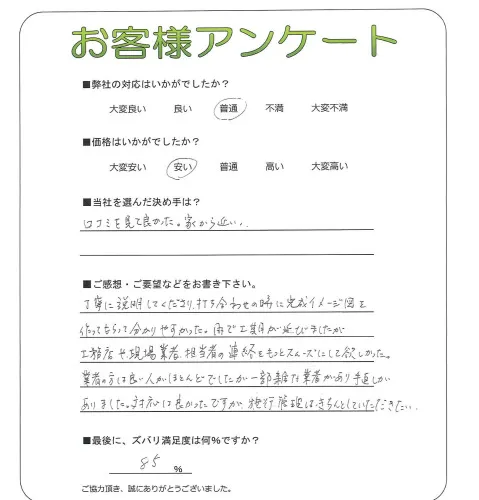 お客様アンケート
■弊社の対応はいかがでしたか？
大変良い 良い 普通 不満 大変不満
■価格はいかがでしたか？
大変安い 安い 普通 高い 大変高い
■当社を選んだ決め手は？
口コミを見て良かった。家から近い。
■ご感想・ご要望などをお書き下さい。
丁寧に説明してくださり、打ち合わせの時に完成イメージ図を
作ってもらって分かりやすかった。雨で工期が延びましたが
工務店や現場業者、担当者の連絡をもっとスムーズにして欲しかった。
業者の方は良い人がほとんどでしたが一部雑な業者があり手直しが
ありました。対応は良かったですが、施行管理はきちんとしていただきたい。
■最後に、ズバリ満足度は何%ですか？
85 %
ご協力頂き、誠にありがとうございました。